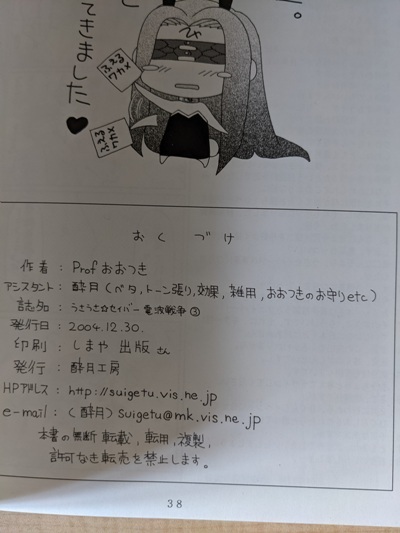 。
と
てきました♥
ひゃ
ふえる
ワカメ
ふえる
ワカメ
おくづけ
作者 : Profおおつき
アシスタント : 酔月(ベタ,トーン張り,効果,雑用,おおつきのお守りetc)
誌名 : うさうさ☆セイバー 電波戦争③
発行日 : 2004.12.30.
印刷 : しまや 出版 さん
発行 : 酔月工房
HPアドレス : http://suigetu.vis.ne.jp
e-mail : (酔月) suigetu@mk.vis.ne.jp
本書の無断 転載, 転用, 複製,
許可なき転売を禁止します。
38